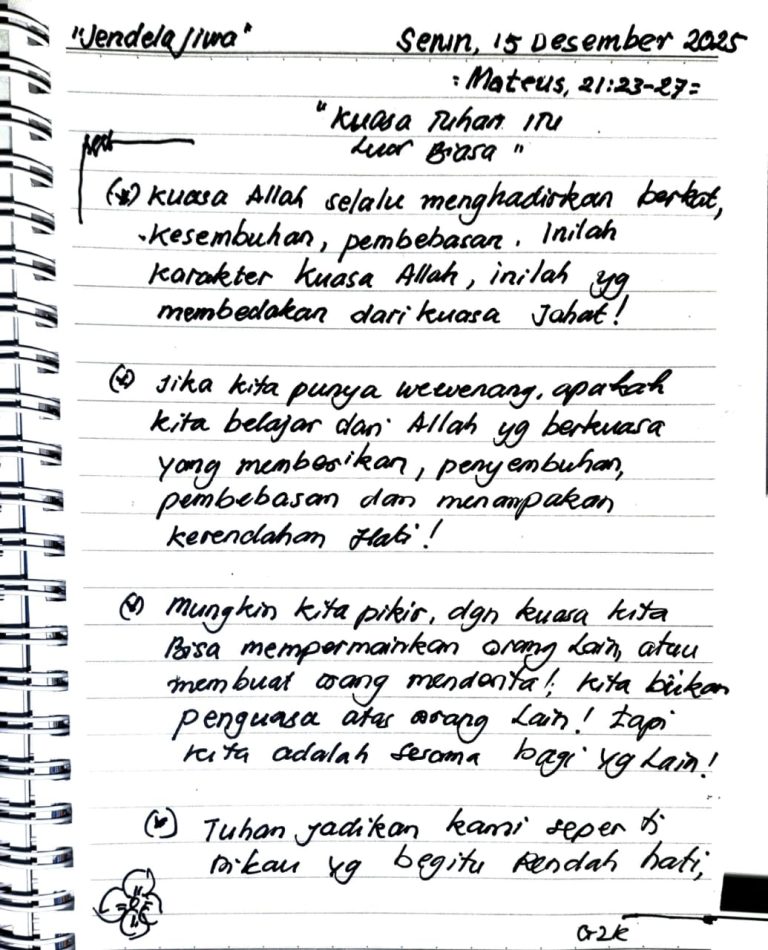 "Jendela Jiwa" Senin, 15 Desember 2025
= Mateus, 21:23-27=
"Kuasa Tuhan ITU
Luar Biasa"
(*) Kuasa Allah selalu menghadirkan berkat,
kesembuhan, pembebasan. Inilah
karakter kuasa Allah, inilah yg
membedakan dari kuasa Jahat!
(*) Jika kita punya wewenang. apakah
kita belajar dari Allah yg berkuasa
yang memberikan, penyembuhan,
pembebasan dan menampakan
kerendahan Hati!
(*) Mungkin kita pikir, dgn kuasa kita
Bisa mempermainkan orang Lain, atau
membuat orang menderita! Kita bukan
penguasa atas orang Lain! tapi
kita adalah sesama bagi yg Lain!
(*) Tuhan jadikan kami seperti
Dikau yg begitu Rendah hati,
G2K